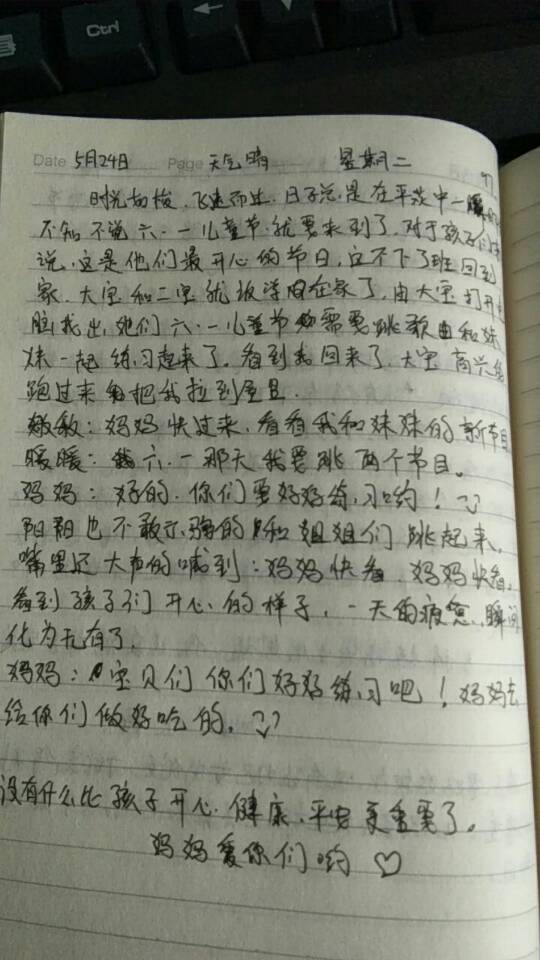 Ctrl
Date 5月24日 Page 天气晴 星期二
时光如梭、飞速而过、日子总是在平淡中一
不知不觉六·一儿童节就要来到了。对于孩子们来
说、这是他们最开心的节日、这不下了班回到
家、大宝和二宝就在家了、由大宝打开
脑找出她们六·一儿童节需要跳歌曲和妹
妹一起练习起来了。看到我回来了、大宝高兴
跑过来把我拉到屋里
嫩嫩：妈妈快过来、看看我和妹妹的新节目
暖暖：六·一那天我要跳两个节目。
妈妈：好的、你们要好好练习哟！
阳阳也不敢示弱的和姐姐们跳起来、
嘴里还大声的喊到：妈妈快看、妈妈快看。
看到孩子们开心的样子、一天的疲惫、瞬间
化为无有了。
妈妈：宝贝们你们好好练习吧！妈妈去
给你们做好吃的。
没有什么比孩子开心、健康、平安更重要了。
妈妈爱你们哟 ♡